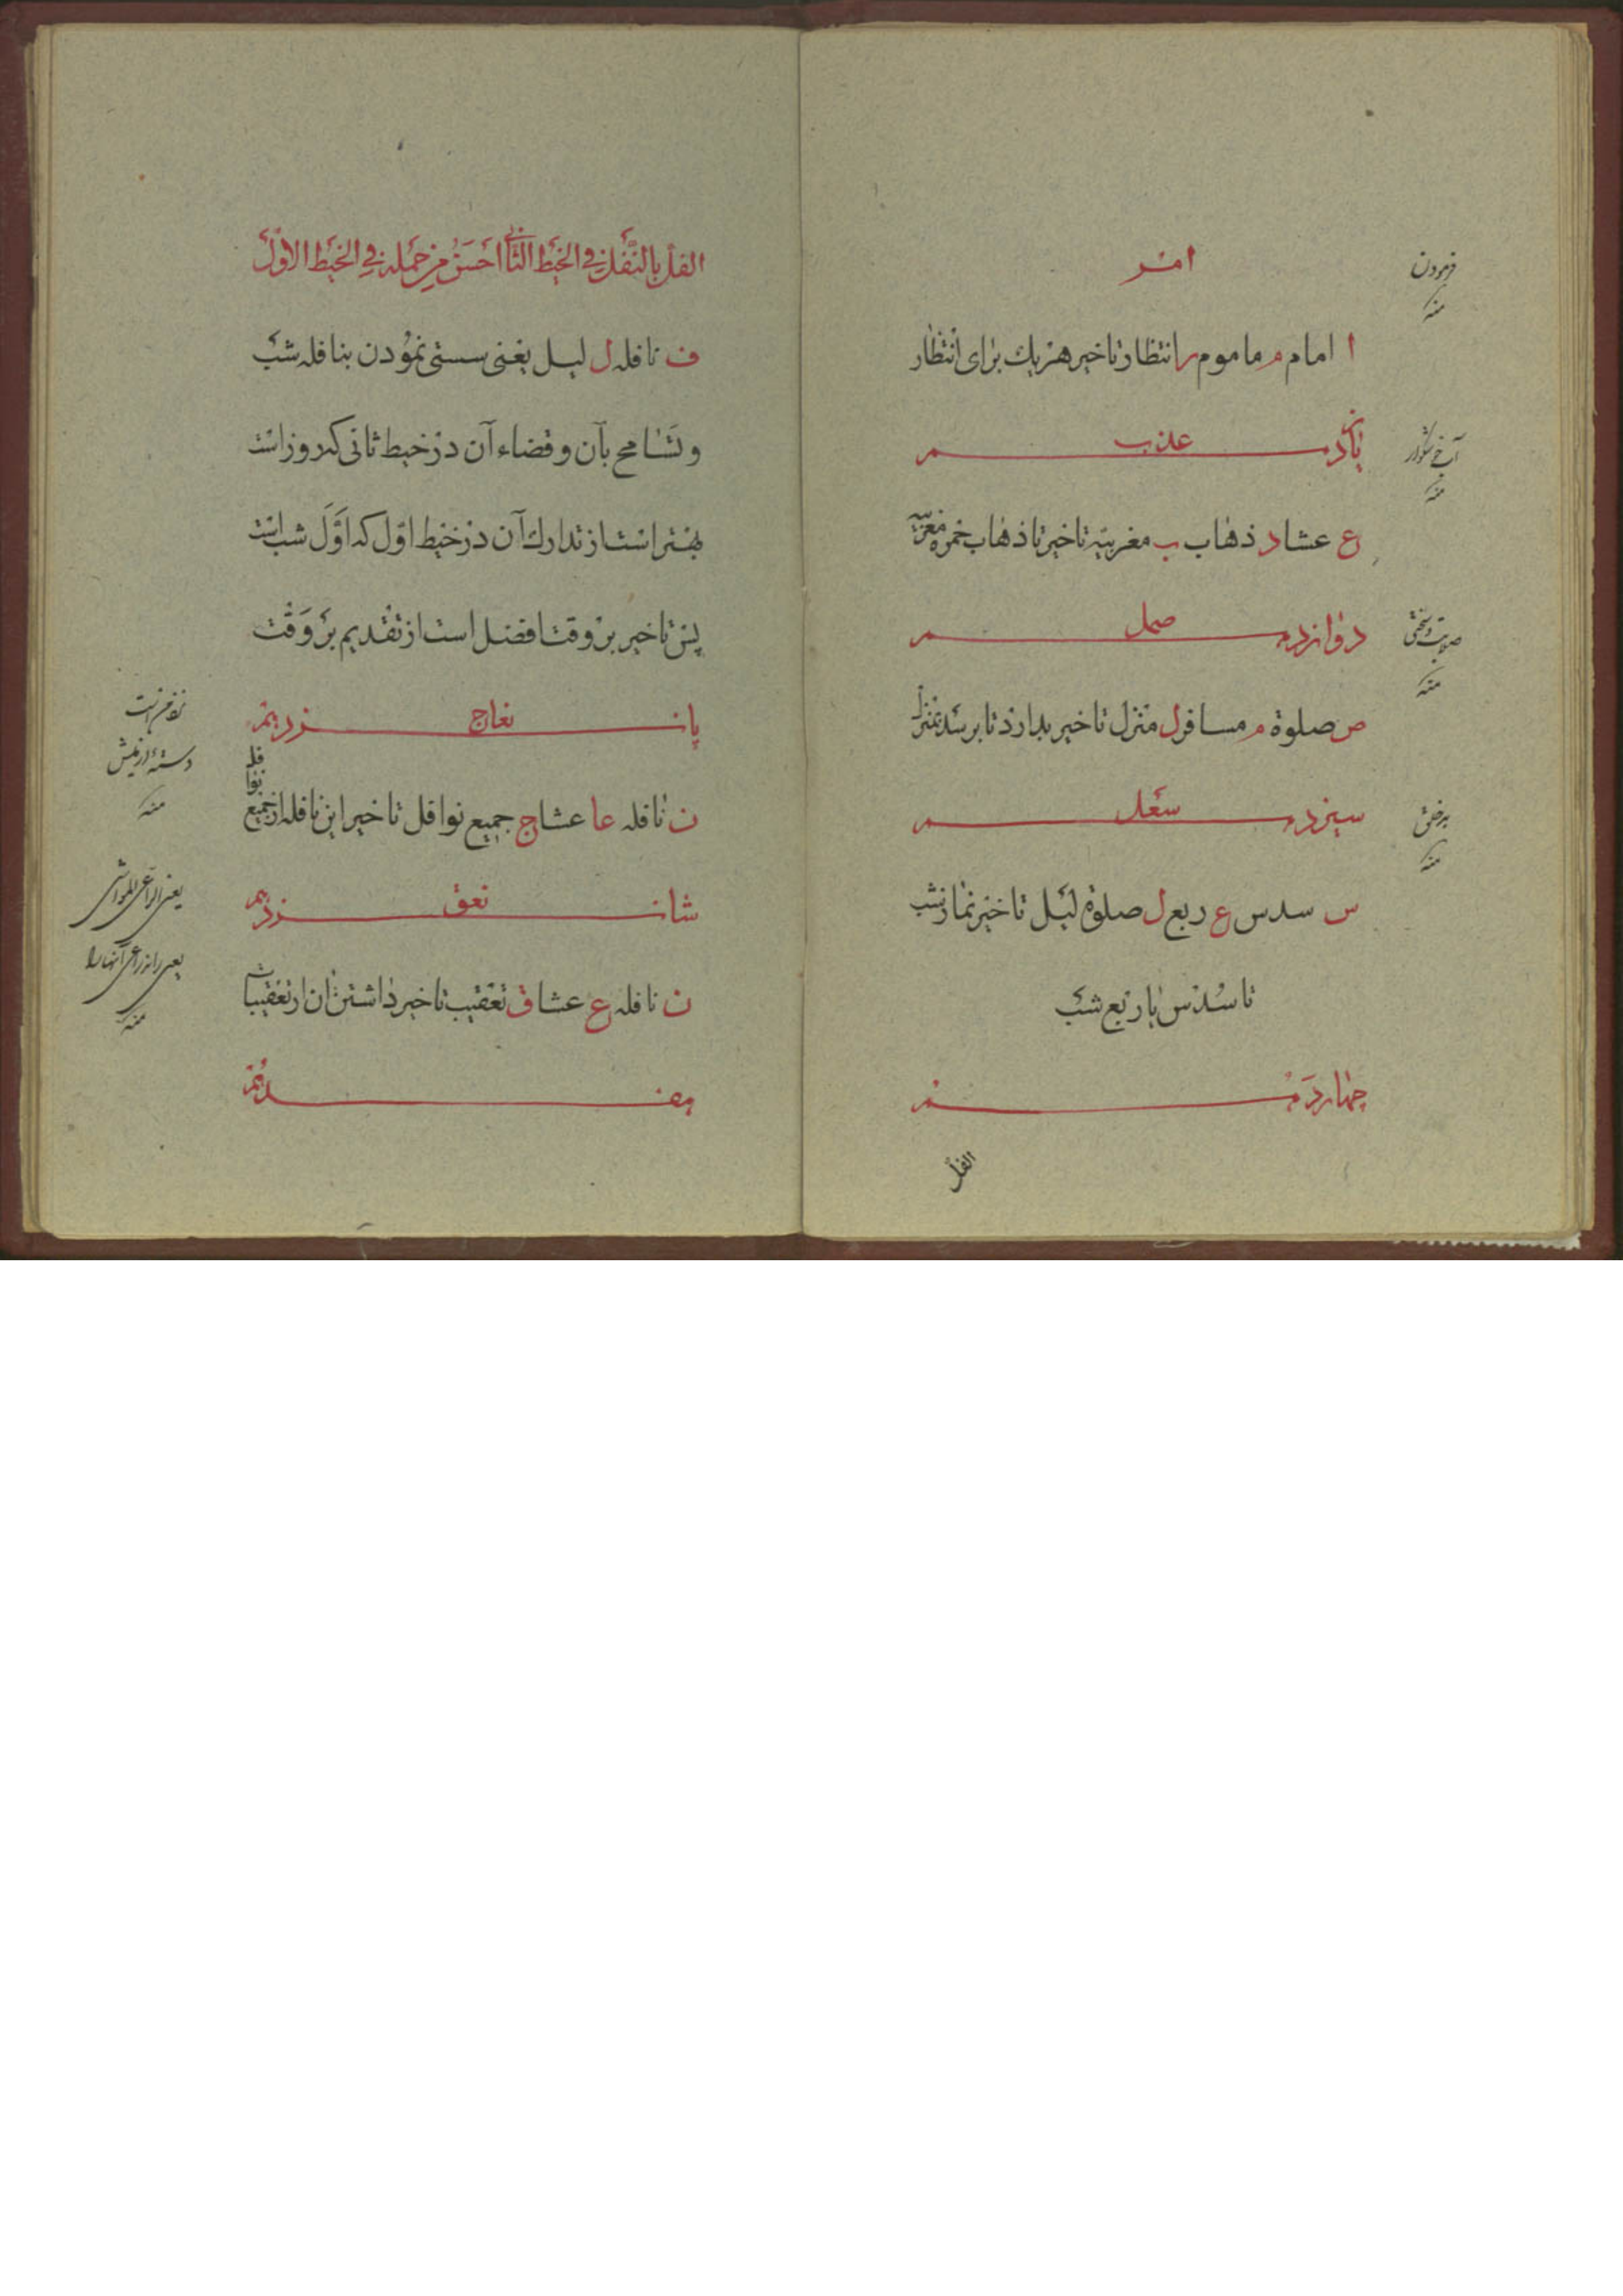 امر
ا امام م ماموم ر انتظار تاخیر هریك برای انتظار
یازدهم عذب
ع عشا د ذهاب ب مغربیه تاخیر تا ذهاب حمره مغربیه
دوازدهم صمل
ص صلوة م مسافر ل منزل تاخیر بدارد تا برسد بمنزل
سیزدهم سعل
س سدس ع ربع ل صلوة لیل تاخیر نماز شب
تا سدس یا ربع شب
چهاردهم
الفل
فرمودن
منه
آب خوشگوار
منه
صلابت و سختی
منه
منه
الفل بالنفل فی الخیط الثانی احسن من حمله فی الخیط الاول
ف نافله ل لیل یعنی سستی نمودن بنافله شب
و تسامح بآن و قضاء آن در خیط ثانی که روز است
بهتر است از تدارك آن در خیط اول که اول شب است
پس تاخیر بر وقت افضل است از تقدیم بر وقت
پانزدهم نعاج
ن نافله عا عشا ج جمیع نوافل تاخیر این نافله از جمیع نوافل
شانزدهم نعق
ن نافله ع عشا ق تعقیب تاخیر داشتن ان از تعقیبات
هفدهم
منه
منه